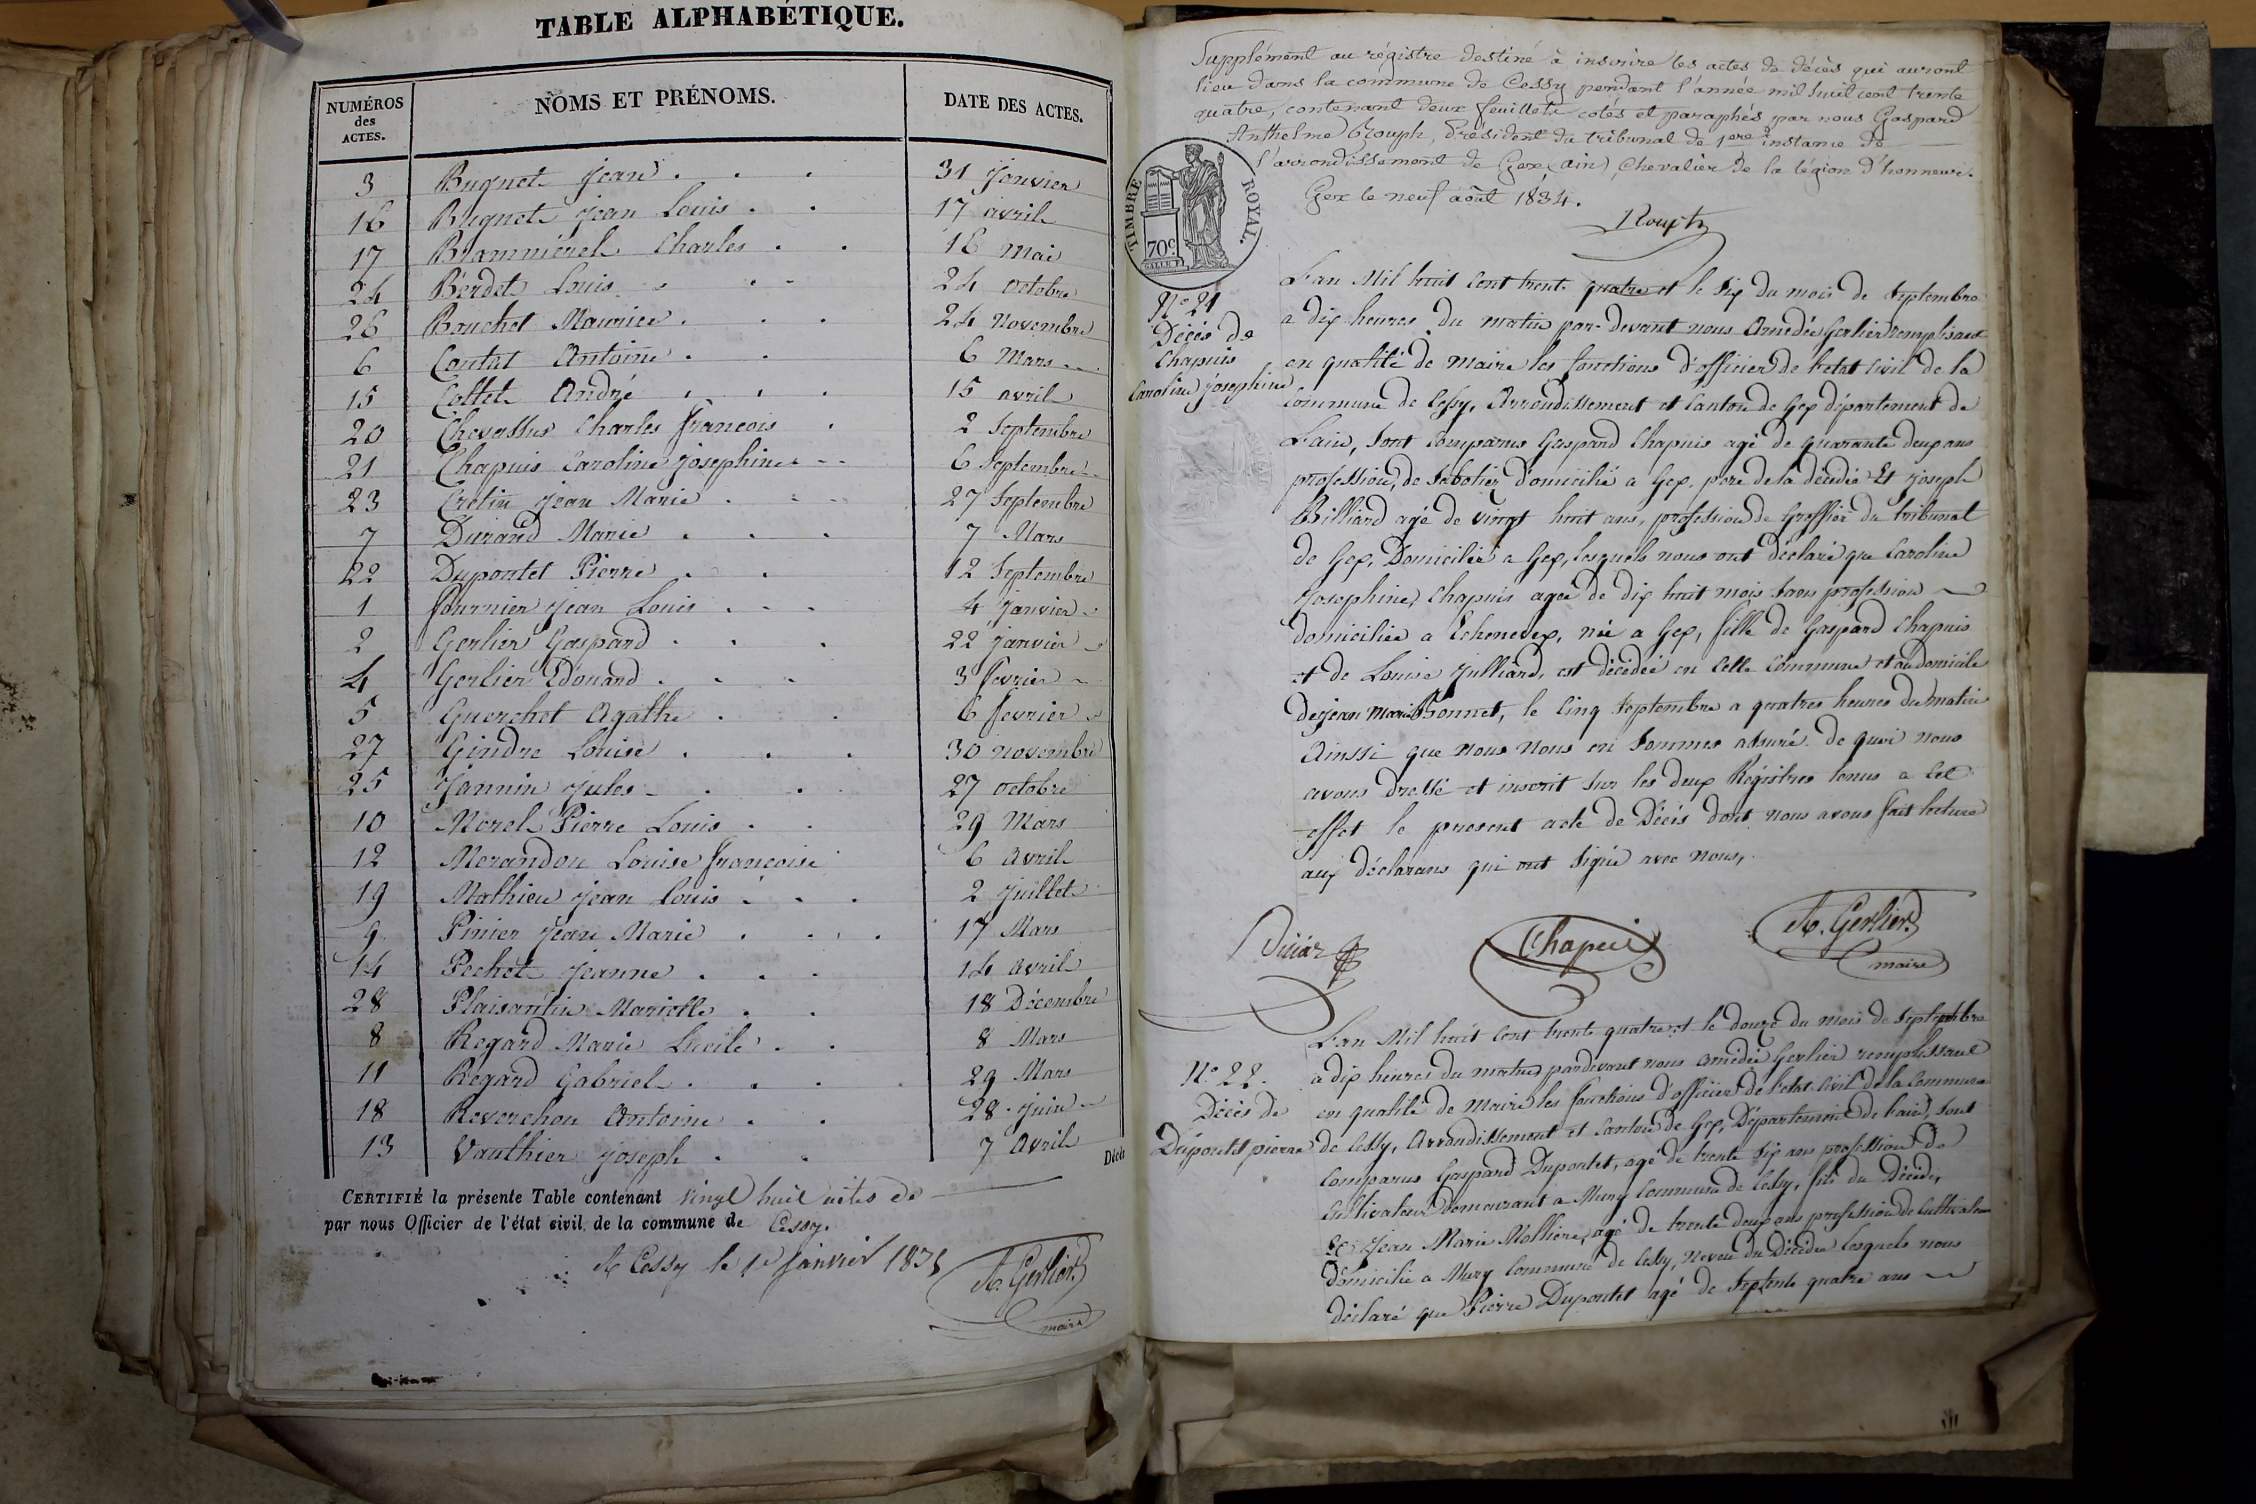 TABLE ALPHABÉTIQUE.
NUMÉROS des ACTES. NOMS ET PRÉNOMS. DATE DES ACTES.
3 Bugnet Jean 31 Janvier
16 Bugnet Jean Louis 17 avril
17 Charles 16 Mai
24 Berdet Louis 24 octobre
26 Bouchet Maurice 24 Novembre
6 Contat Antoine 6 Mars
15 Collet André 15 avril
20 Chevassus Charles françois 2 Septembre
21 Chapuis Caroline Josephine 6 Septembre
23 Cretin Jean Marie 27 Septembre
7 Durand Marie 7 Mars
22 Dupontet Pierre 12 Septembre
1 fournier Jean Louis 4 janvier
2 Gerlier Gaspard 22 janvier
4 Gerlier Edouard 3 fevrier
5 Guerchet Agathe 6 fevrier
27 Gindre Louise 30 novembre
25 Jannin Jules 27 octobre
10 Morel Pierre Louis 29 Mars
12 Morandon Louise françoise 6 Avril
19 Mathieu Jean Louis 2 Juillet
9 Pinier Jean Marie 17 Mars
14 Pechet Jeanne 14 avril
28 Plaisantin Mariette 18 Décembre
8 Regard Marie Lucile 8 Mars
11 Regard Gabriel 29 Mars
18 Reverchon Antoine 28 Juin
13 Vauthier Joseph 7 Avril
Décès
CERTIFIÉ la présente Table contenant vingt huit actes de
par nous Officier de l'état civil de la commune de Cessy.
A Cessy le 1er Janvier 1835
A. Gerlier
maire
Supplément au régistre destiné à inscrire les actes de décès qui auront
lieu dans la commune de Cessy pendant l'année mil huit cent trente
quatre, contenant deux feuillets cotés et paraphés par nous Gaspard
Anthelme Rouph, Président du tribunal de 1ere instance de
l'arrondissement de Gex (ain), Chevalier de la légion d'honneur.
Gex le neuf août 1834.
Rouph
TIMBRE ROYAL.
70c.
N° 21
Décès de
Chapuis
Caroline Josephine
L'an Mil huit Cent trente quatre et le six du mois de Septembre
a dix heures du matin par-devant nous Amedée Gerlier remplissant
en qualité de maire les fonctions d'officier de l'etat Civil de la
Commune de Cessy, Arrondissement et Canton de Gex département de
L'ain, sont Comparus Gaspard Chapuis agé de quarante deux ans
profession de Sabotier domicilié a Gex, pere de la décédée Et joseph
Billiard agé de vingt huit ans, profession de Greffier du tribunal
de Gex, Domicilié a Gex, lesquels nous ont déclaré que Caroline
Josephine Chapuis agée de dix huit mois sans profession
domiciliée a Echenevex, née a Gex, fille de Gaspard Chapuis
et de Louise Julliard, est décédée en Cette Commune et au Domicile
de jean Marie Bonnet, le Cinq Septembre a quatres heures du matin
Ainssi que nous nous en sommes assuré. de quoi nous
avons dressé et inscrit sur les deux Régistres tenus a Cet
effet le present acte de Décès dont nous avons fait lecture
aux déclarans qui ont signé avec nous.
Chapuis
A. Gerlier
maire
N° 22.
Décès de
Dupontet pierre
L'an Mil huit Cent trente quatre et le douze du mois de Septembre
a dix heures du matin pardevant nous Amedée Gerlier remplissant
en qualité de Maire les fonctions d'officier de l'etat Civil de la Commune
de Cessy, Arrondissement et Canton de Gex, Département de l'ain, sont
Comparus Gaspard Dupontet, agé de trente six ans profession de
Cultivateur demeurant a Mury Commune de Cessy, fils du Décédé,
Et Jean Marie Mollière, agé de trente deux ans profession de Cultivateur
domicilié a Mury Commune de Cessy, neveu du Décédé lesquels nous
déclaré que Pierre Dupontet agé de Septente quatre ans